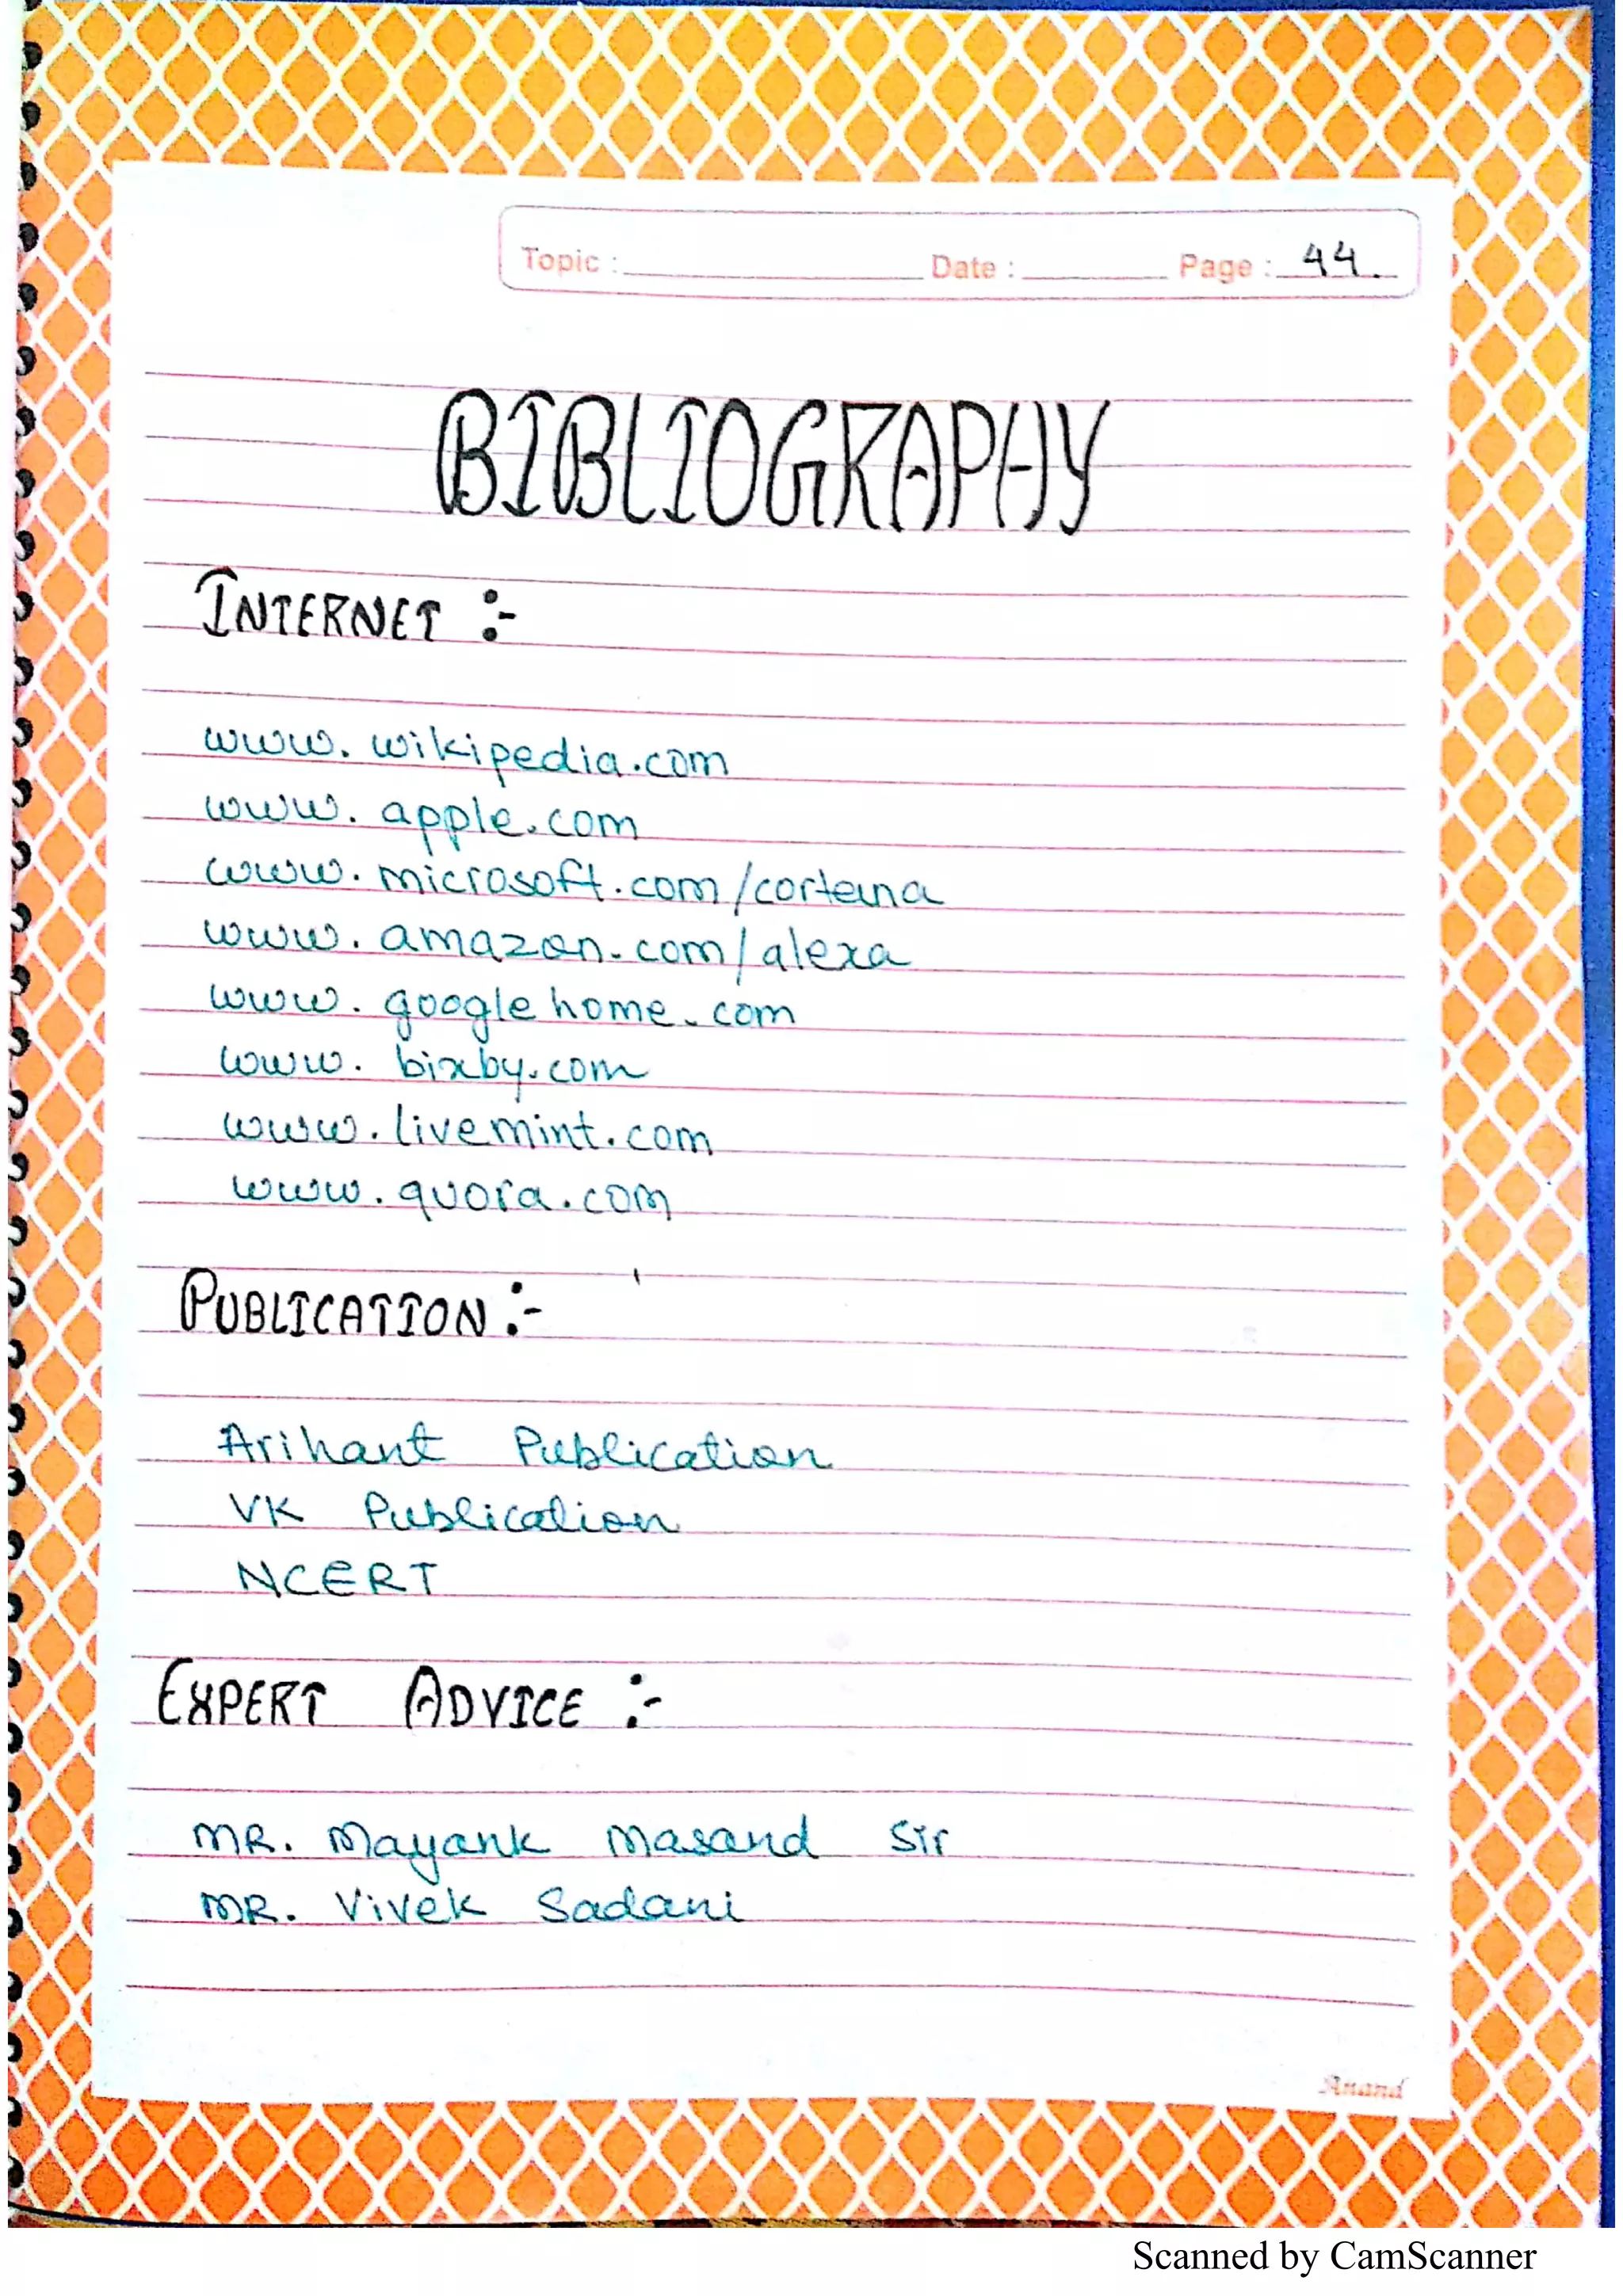 Topic : Date : Page : 44.
BIBLIOGRAPHY
INTERNET :-
www. wikipedia.com
www. apple.com
www. microsoft.com/corteina
www. amazon.com/alexa
www. googlehome.com
www. bixby.com
www. livemint.com
www. quora.com
PUBLICATION :-
Arihant Publication
VK Publication
NCERT
EXPERT ADVICE :-
MR. Mayank Masand Sir
MR. Vivek Sadani
Anand
Scanned by CamScanner